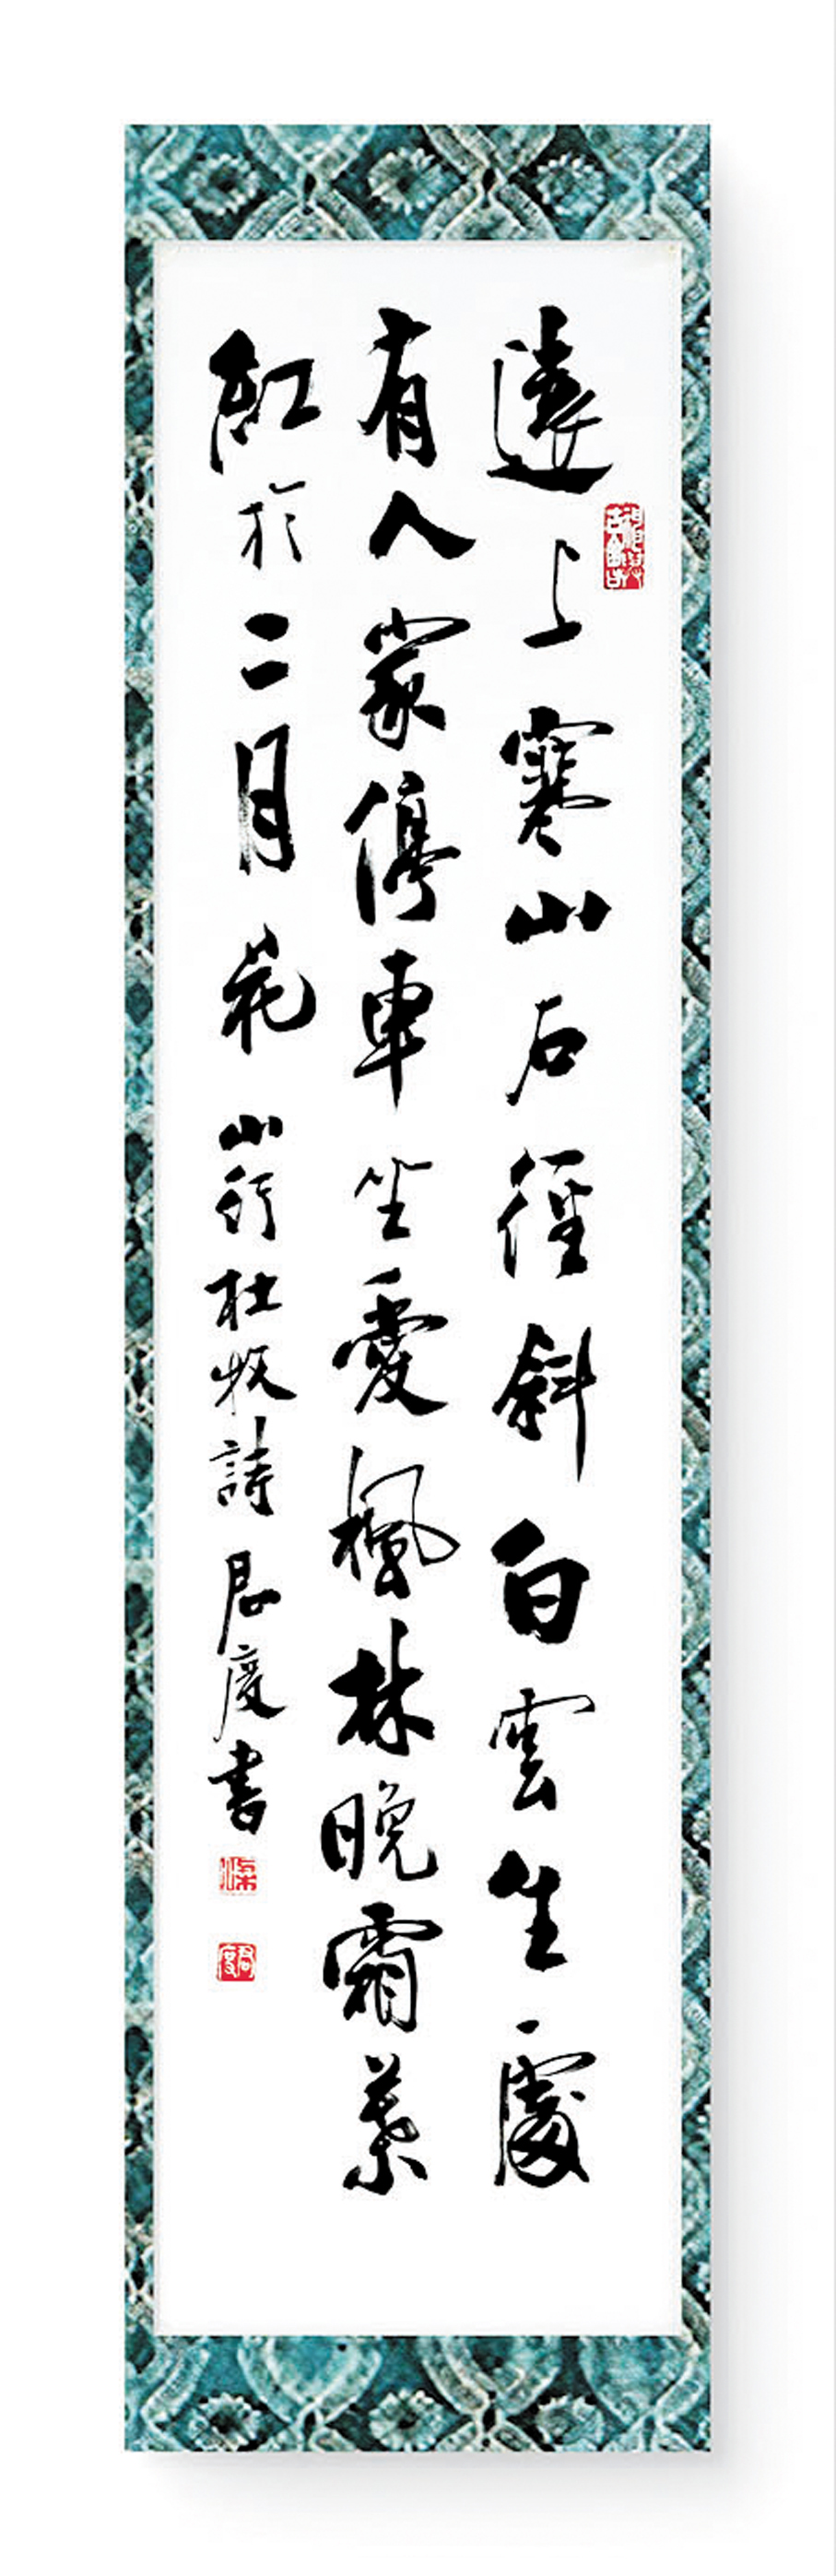 遠上寒山石徑斜白雲生處
有人家停車坐愛楓林晚霜葉
紅於二月花 山行杜牧詩 君度書
梁
君度